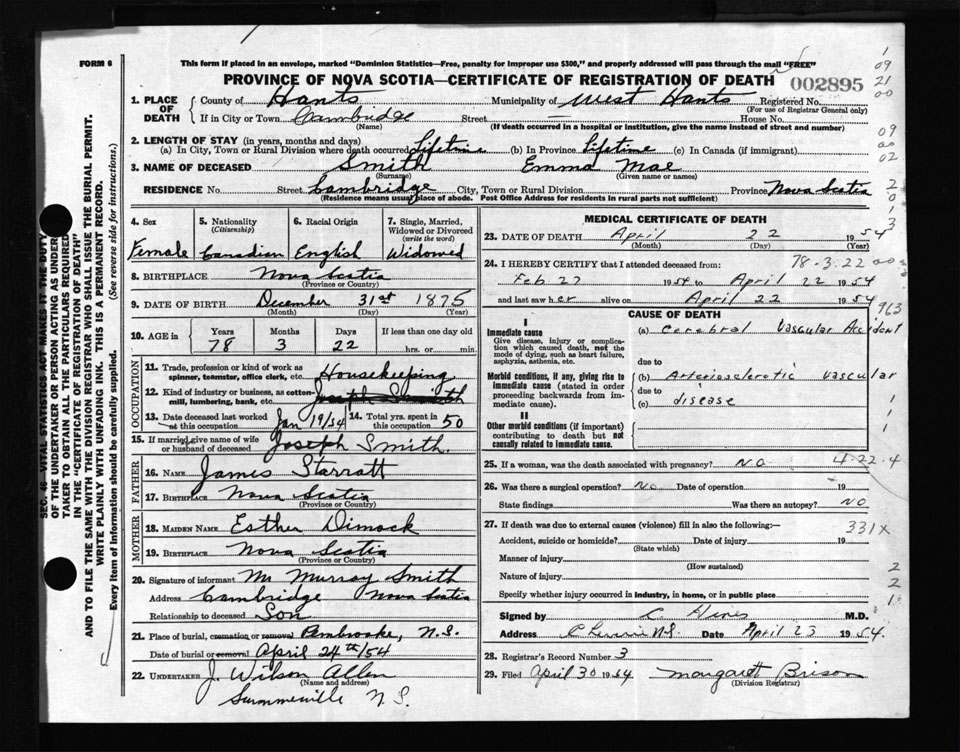 FORM 6
This form if placed in an envelope, marked "Dominion Statistics—Free, penalty for improper use $300," and properly addressed will pass through the mail "FREE"
PROVINCE OF NOVA SCOTIA—CERTIFICATE OF REGISTRATION OF DEATH
002895
09
21
00
1. PLACE OF DEATH
County of Hants Municipality of West Hants Registered No.
(For use of Registrar General only)
If in City or Town Cambridge Street — House No.
(Name) (If death occurred in a hospital or institution, give the name instead of street and number)
2. LENGTH OF STAY (in years, months and days)
(a) In City, Town or Rural Division where death occurred Lifetime (b) In Province Lifetime (c) In Canada (if immigrant)
09
00
02
3. NAME OF DECEASED Smith Emma Mae
(Surname) (Given name or names)
RESIDENCE No. Street Cambridge City, Town or Rural Division Province Nova Scotia
(Residence means usual place of abode. Post Office Address for residents in rural parts not sufficient)
2
0
1
3
4. Sex
Female
5. Nationality
(Citizenship)
Canadian
6. Racial Origin
English
7. Single, Married, Widowed or Divorced
(write the word)
Widowed
8. BIRTHPLACE Nova Scotia
(Province or Country)
9. DATE OF BIRTH December 31st 1875
(Month) (Day) (Year)
10. AGE in
Years Months Days If less than one day old
78 3 22 hrs. or min.
OCCUPATION
11. Trade, profession or kind of work as
spinner, teamster, office clerk, etc. Housekeeping
12. Kind of industry or business, as cotton-
mill, lumbering, bank, etc. Joseph Smith
13. Date deceased last worked
at this occupation Jan 19/54
14. Total yrs. spent in
this occupation 50
15. If married give name of wife
or husband of deceased Joseph Smith.
FATHER
16. NAME James Starratt
17. BIRTHPLACE Nova Scotia
(Province or Country)
MOTHER
18. MAIDEN NAME Esther Dimock
19. BIRTHPLACE Nova Scotia
(Province or Country)
20. Signature of informant Mr Murray Smith
Address Cambridge Nova Scotia
Relationship to deceased Son
21. Place of burial, cremation or removal Pembroke, N.S.
Date of burial or removal April 24th/54
22. UNDERTAKER J. Wilson Allen
(Name and address)
Summerville N.S.
MEDICAL CERTIFICATE OF DEATH
23. DATE OF DEATH April 22 1954
(Month) (Day) (Year)
24. I HEREBY CERTIFY that I attended deceased from: 78-3-22 00
Feb 27 1954 to April 22 1954
and last saw her alive on April 22 1954
963
CAUSE OF DEATH
I
Immediate cause
Give disease, injury or complication which caused death, not the mode of dying, such as heart failure, asphyxia, asthenia, etc.
(a) Cerebral Vascular Accident
due to
Morbid conditions, if any, giving rise to immediate cause (stated in order proceeding backwards from immediate cause).
(b) Arteriosclerotic vascular
due to
(c) disease
II
Other morbid conditions (if important) contributing to death but not causally related to immediate cause.
25. If a woman, was the death associated with pregnancy? No
4-22-4
26. Was there a surgical operation? No Date of operation 19
State findings Was there an autopsy? No
27. If death was due to external causes (violence) fill in also the following:—
331x
Accident, suicide or homicide? Date of injury 19
(State which)
Manner of injury
(How sustained)
Nature of injury
Specify whether injury occurred in industry, in home, or in public place
2
2
1
Signed by C. Hines M.D.
Address N.S. Date April 23 1954.
28. Registrar's Record Number 3
29. Filed April 30 1954 Margaret Brison
(Division Registrar)
SEC. 46 VITAL STATISTICS ACT MAKES IT THE DUTY
OF THE UNDERTAKER OR PERSON ACTING AS UNDER-
TAKER TO OBTAIN ALL THE PARTICULARS REQUIRED
IN THE "CERTIFICATE OF REGISTRATION OF DEATH"
AND TO FILE THE SAME WITH THE DIVISION REGISTRAR WHO SHALL ISSUE THE BURIAL PERMIT.
WRITE PLAINLY WITH UNFADING INK. THIS IS A PERMANENT RECORD.
Every item of information should be carefully supplied. (See reverse side for instructions.)